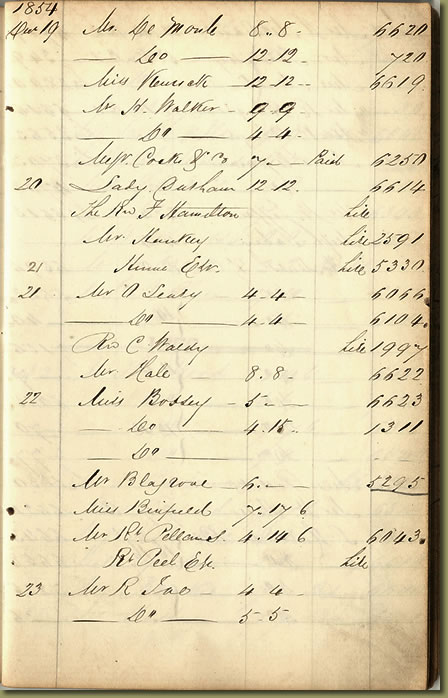 1854
Decr 19 Mr. De Moule 8..8 - 6620
— Do — 12.12 - 720
Miss Kenrick — 12.12 -- 6619
Mr H. Walker — 9 9 -
— Do — 4 4 -
Messrs Cocks & Co 7 — Paid 6250
20 Lady 12.12. 6614
The Rev F Hamilton Lite
Mr. Hankey Lite 2591
21 Esqr. Lite 5330
21 Mr O Leary 4-4 - 6066
— Do — 4-4. 6104.
Rev C Lite 1997
Mr. Hale 8.8. 6622
22 Miss Bossey — 5 - — 6623
— Do — 4.15. 1311
— Do —
Mr Blagrove — 6. — 5295
Miss Binfield 7.17 6
Mr Rt. 4.14 6 6043.
Rt Peel Esq. Lite
23 Mr R — 4 4 —
— Do — 5-5